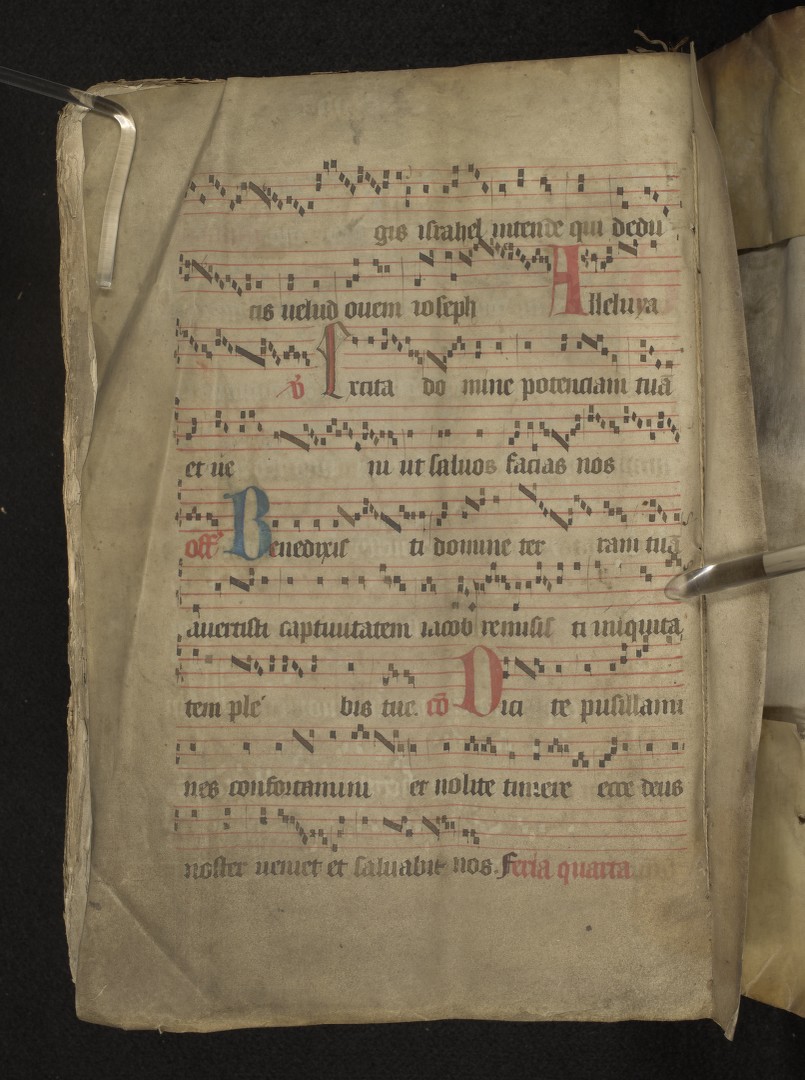 gis israhel intende qui dedu
cis uelud ouem ioseph Alleluya
℣ Excita do mine potenciam tuā
et ue ni ut saluos facias nos
off Benedixis ti domine ter ram tuā
auertisti captiuitatem iacob remisis ti iniquita
tem ple bis tue. cō Dici te pusillani
nes confortamini et nolite timere ecce deus
noster ueniet et saluabit nos. Feria quarta